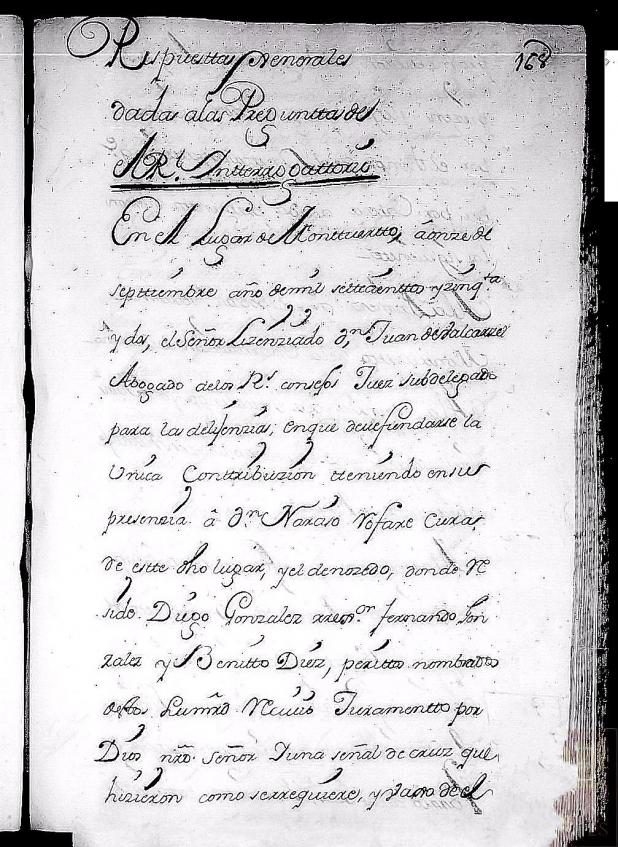 168
Respuesttas Generales
dadas alas Preguntas del
el Rl. Intterrogattorio
En el Lugar de Monttuertto, áonze de
septtiembre año demil settezientto yzinqta
y dos, el Señor Lizenziado Dn Juan deValcarzel
Abogado delos Rs. consejos Juez subdelegado
para las delijenzias, enque deuefundarse la
Unica Conttribuzion tteniendo ensus
presenzia â Dn Narziso Cura,
de estte dho lugar, yel denozedo, donde Re
side. Diego Gonzalez fernando Gon
zalez y Benitto Diez, peritto nombrados
Juramentto por
Dios nro. señor Yuna señal de cruz que
hizieron como serrequiere, y vajo de el